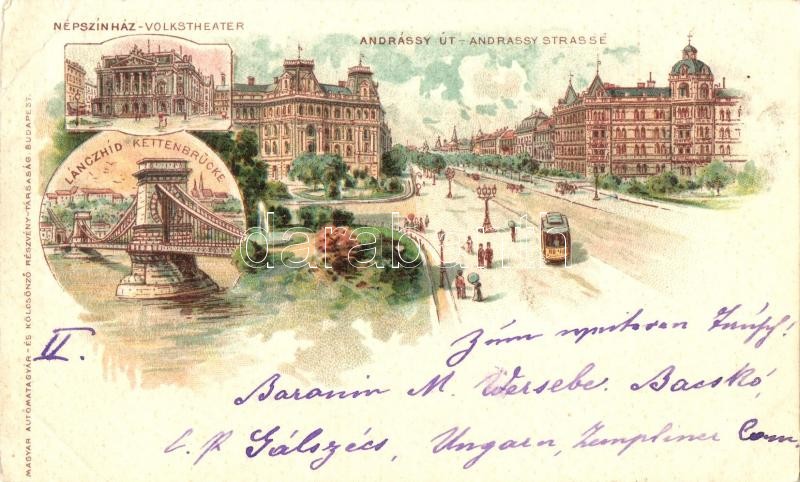 NÉPSZÍNHÁZ-VOLKSTHEATER
ANDRÁSSY ÚT-ANDRASSY STRASSE
LÁNCZHÍD KETTENBRÜCKE
MAGYAR AUTOMATAGYÁR- ÉS KÖLCSÖNZŐ RÉSZVÉNY-TÁRSASÁG BUDAPEST.
darabanth.com
II.
Zum weiteren Tausch!
Baronin M. Wersebe. Bacskó,
L. P. Gálszécs, Ungarn, Zempliner Com.